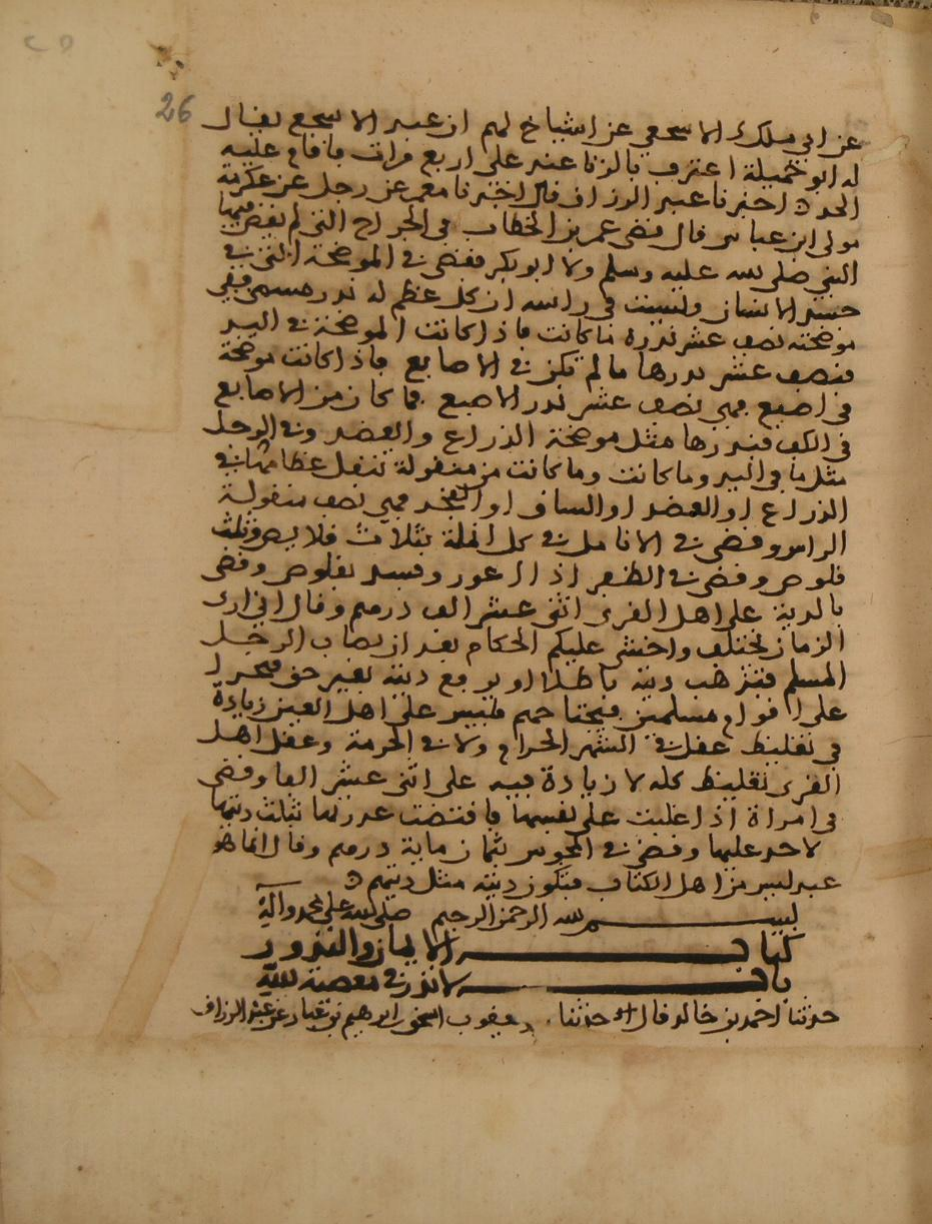 26
عن ابي ملك الاشجعي عن اشياخ لهم ان عبد الاشجع يقال
له ابو جميلة اعترف بالزنا عنده على اربع مرات فاقام عليه
الحد ه اخبرنا عبد الرزاق قال اخبرنا معمر عن رجل عن عكرمة
مولى ابن عباس قال قضى عمر بن الخطاب في الجراح التي لم يقض فيها
النبي صلى الله عليه وسلم ولا ابو بكر فقضى في الموضحة التي في
جسد الانسان وليست في راسه ان كل عظم له نذر مسمى ففي
موضحته نصف عشر نذره ما كانت فاذا كانت الموضحة في اليد
فنصف عشر نذرها ما لم تكن في الاصابع فاذا كانت موضحة
في اصبع فهي نصف عشر نذر الاصبع فما كان من الاصابع
في الكف فنذرها مثل موضحة الذراع والعضد وفي الرجل
مثل ما في اليد وما كانت وما كانت من منقولة تنقل عظامها في
الذراع او العضد او الساق او الفخذ فهي نصف منقولة
الراس وقضى في الانامل في كل انملة بثلاث قلايص وثلث
قلوص وقضى في الظفر اذا اعور وفسد بقلوص وقضى
بالدية على اهل القرى اثنى عشر الف درهم وقال اني ارى
الزمان يختلف واخشى عليكم الحكام بعد ان يصاب الرجل
المسلم فتذهب ديته باطلا او يرفع ديته بغير حق فتحمل
على اقوام مسلمين فيجتاحهم فليس على اهل العين زيادة
في تغليظ عقل في الشهر الحرام ولا في الحرمة وعقل اهل
القرى تغليظ كله لا زيادة فيه على اثنى عشر الفا وقضى
في امراة اذا غلبت على نفسها فافتضت عذرتها بثلث ديتها
لا حد عليها وقضى في المجوس بثمان ماية درهم وقال انما هو
عبد ليس من اهل الكتاب فيكون ديته مثل ديتهم ه
بسم الله الرحمن الرحيم صلى الله على محمد وآله
كتاب الايمان والنذور
باب لا نذر في معصية الله
حدثنا احمد بن خالد قال حدثنا يعقوب اسحق بن ابراهيم بن عباد عن عبد الرزاق